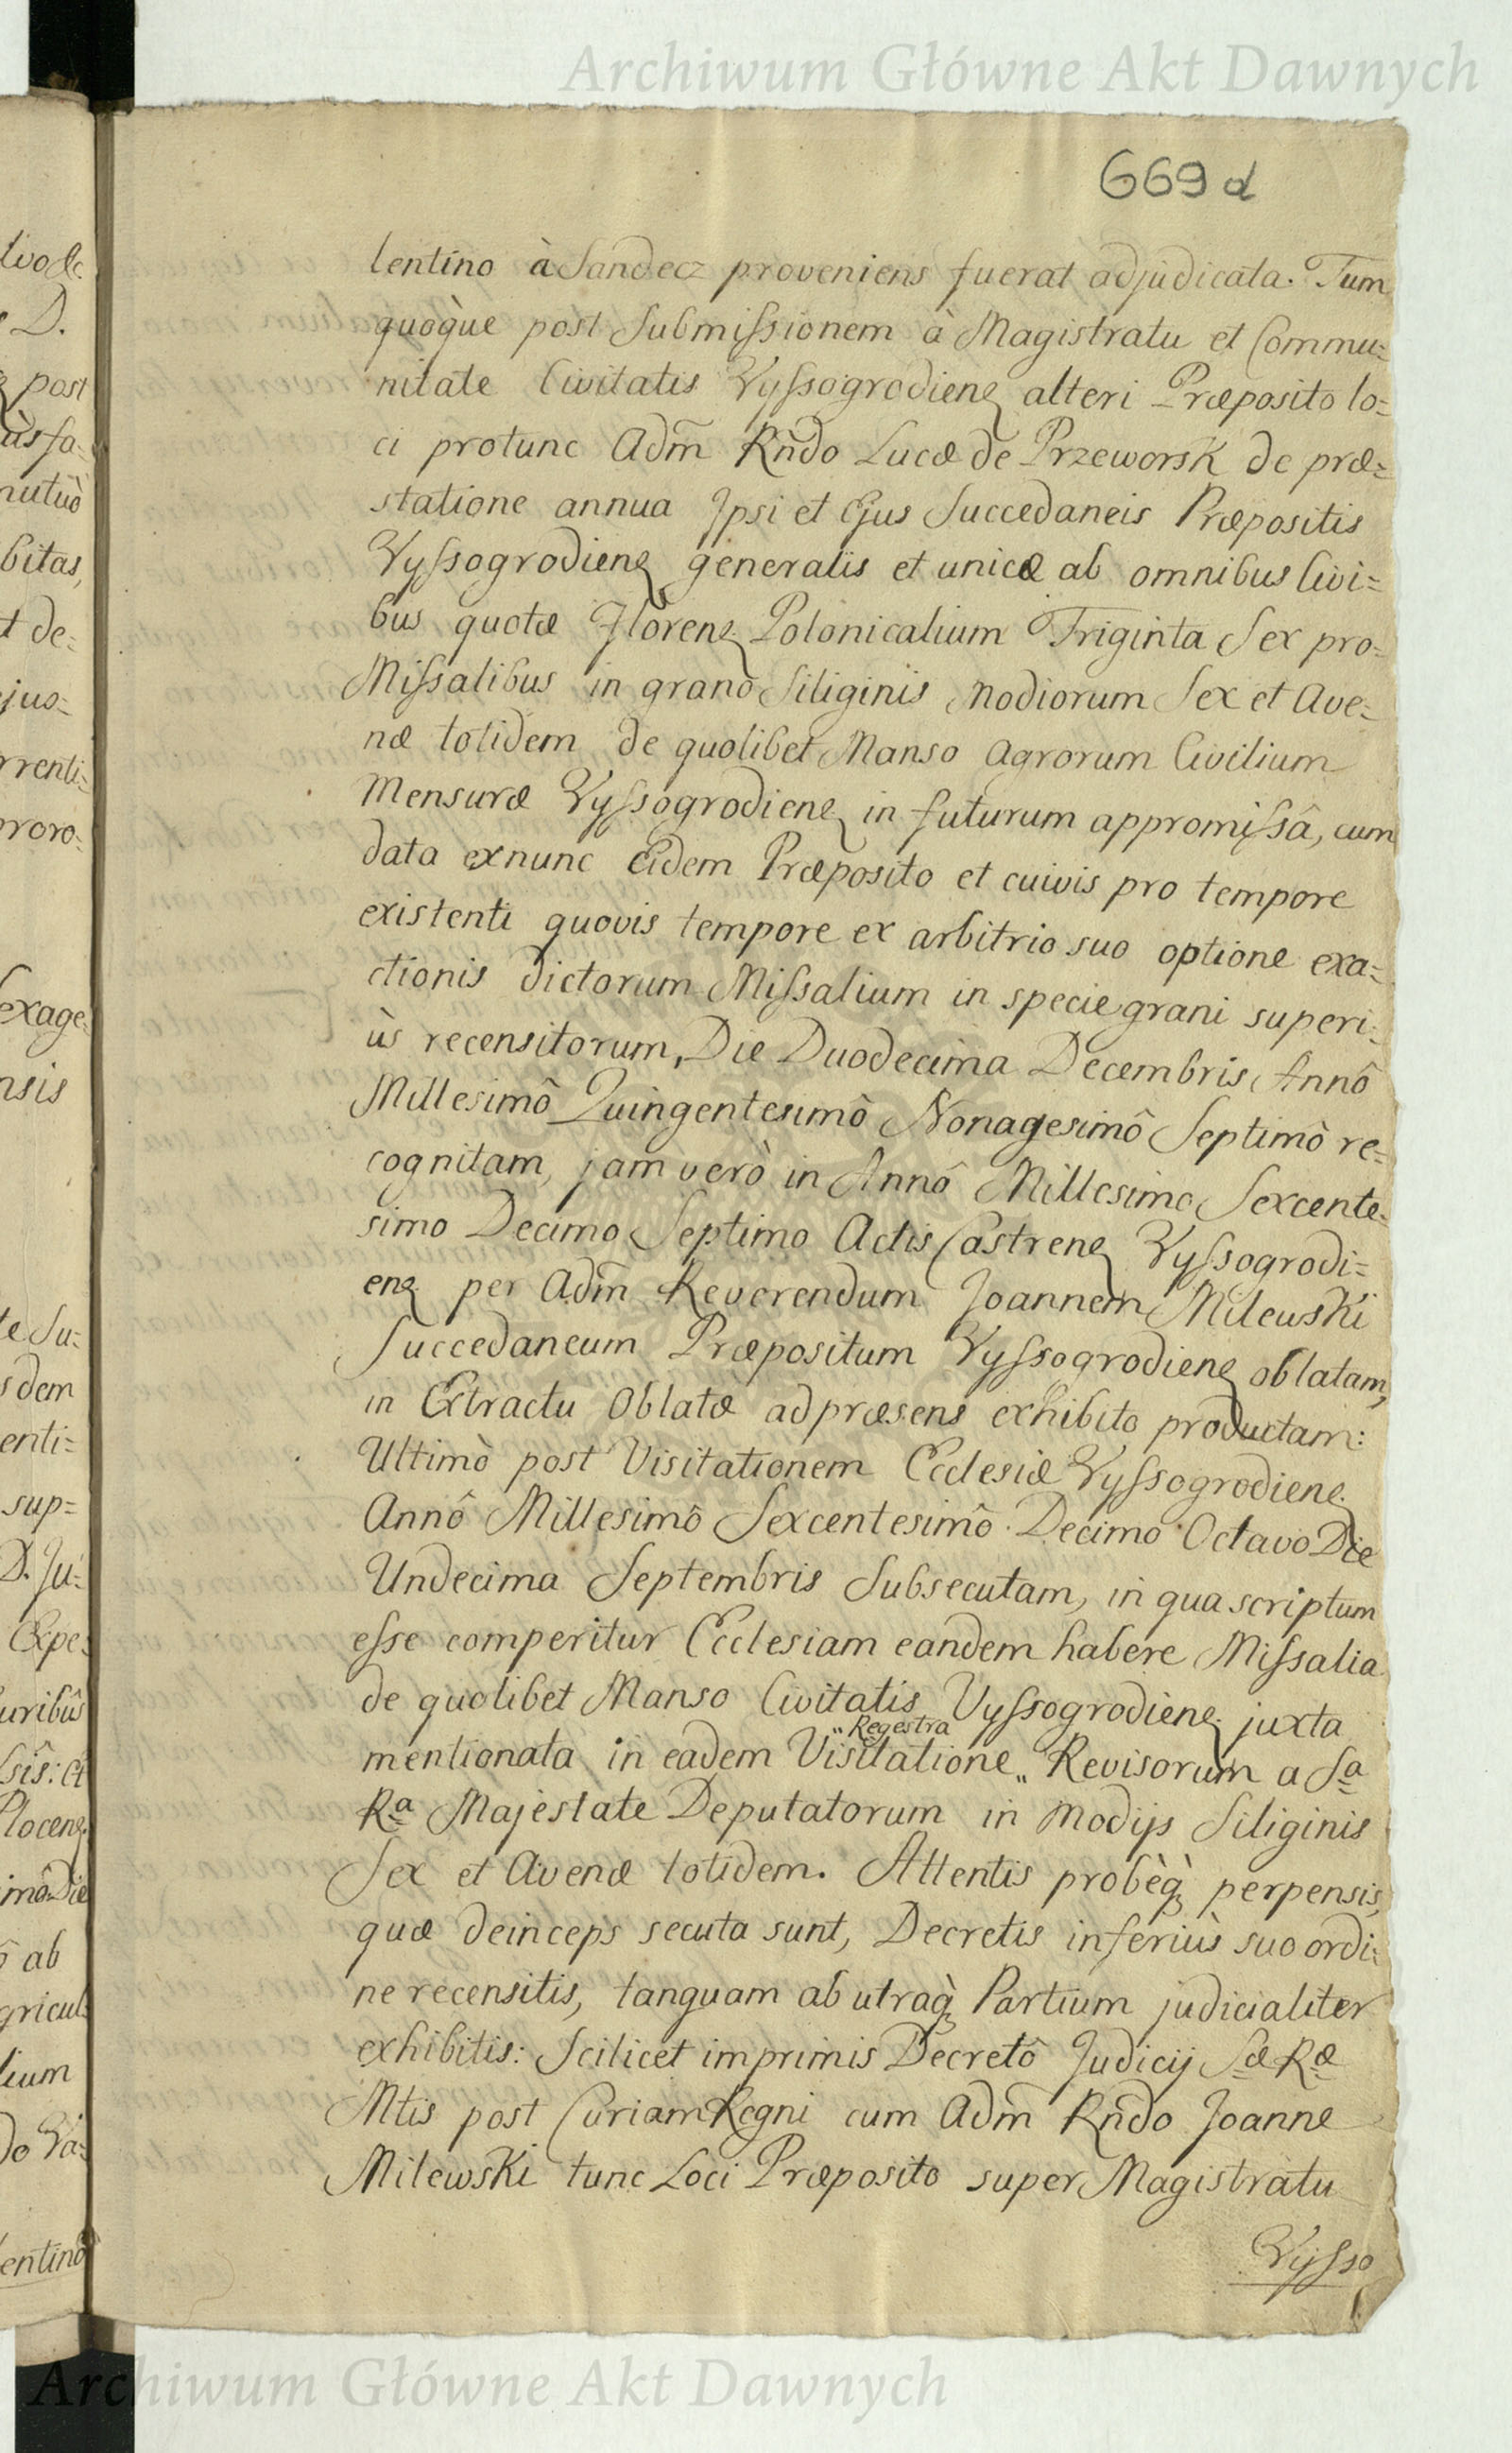 Archiwum Główne Akt Dawnych
669 d
lentino à Sandecz proveniens fuerat adjudicata. Tum
quoq̀ue post Submiſsionem à Magistratu et Commu=
nitate Civitatis Vyſsogrodienȩ alteri Præposito lo=
ci protunc Adm̃ Rñdo Lucæ de Przeworsk de præ=
statione annua Ipsi et Ejus Succedaneis Præpositis
Vyſsogrodienȩ generalis et unicæ ab omnibus Civi=
bus quotæ Florenȩ Polonicalium Triginta Sex pro=
Miſsalibus in granô Siliginis Modiorum Sex et Ave=
næ totidem de quolibet Manso Agrorum Civilium
Mensuræ Vyſsogrodienȩ in futurum appromiſsâ, cum
data exnunc Eidem Præposito et cuivis pro tempore
existenti quovis tempore ex arbitrio suo optione exa=
ctionis dictorum Miſsalium in specie grani superi=
ùs recensitorum, Die Duodecima Decembris Annô
Millesimô Quingentesimô Nonagesimô Septimô re=
cognitam, jam verò in Annô Millesimo Sexcente=
simo Decimo Septimo Actis Castrenȩ Vyſsogrodi=
enȩ per Adm̃ Reverendum Joannem Milewski
Succedaneum Præpositum Vyſsogrodienȩ oblatam,
in Extractu Oblatæ ad præsens exhibito productam:
Ultimò post Visitationem Ecclesiæ Vyſsogrodienȩ
Annô Millesimô Sexcentesimô Decimo Octavo Die
Undecima Septembris Subsecutam, in qua scriptum
eſse comperitur Ecclesiam eandem habere Miſsalia
de quolibet Manso Civitatis Vyſsogrodienȩ juxta
„Regestra
mentionata in eadem Visitatione „ Revisorum a Sa
Ra Majestate Deputatorum in Modijs Siliginis
Sex et Avenæ totidem. Attentis probèq̀ȝ perpensis,
quæ deinceps secuta sunt, Decretis inferiùs suo ordi=
ne recensitis, tanquam ab utraq̀ȝ Partium judicialiter
exhibitis: Scilicet imprimis Decretô Judicij Sæ Ræ
Mtis post Curiam Regni cum Adm̃ Rñdo Joanne
Milewski tunc Loci Præposito super Magistratu
Vyſso
Archiwum Główne Akt Dawnych